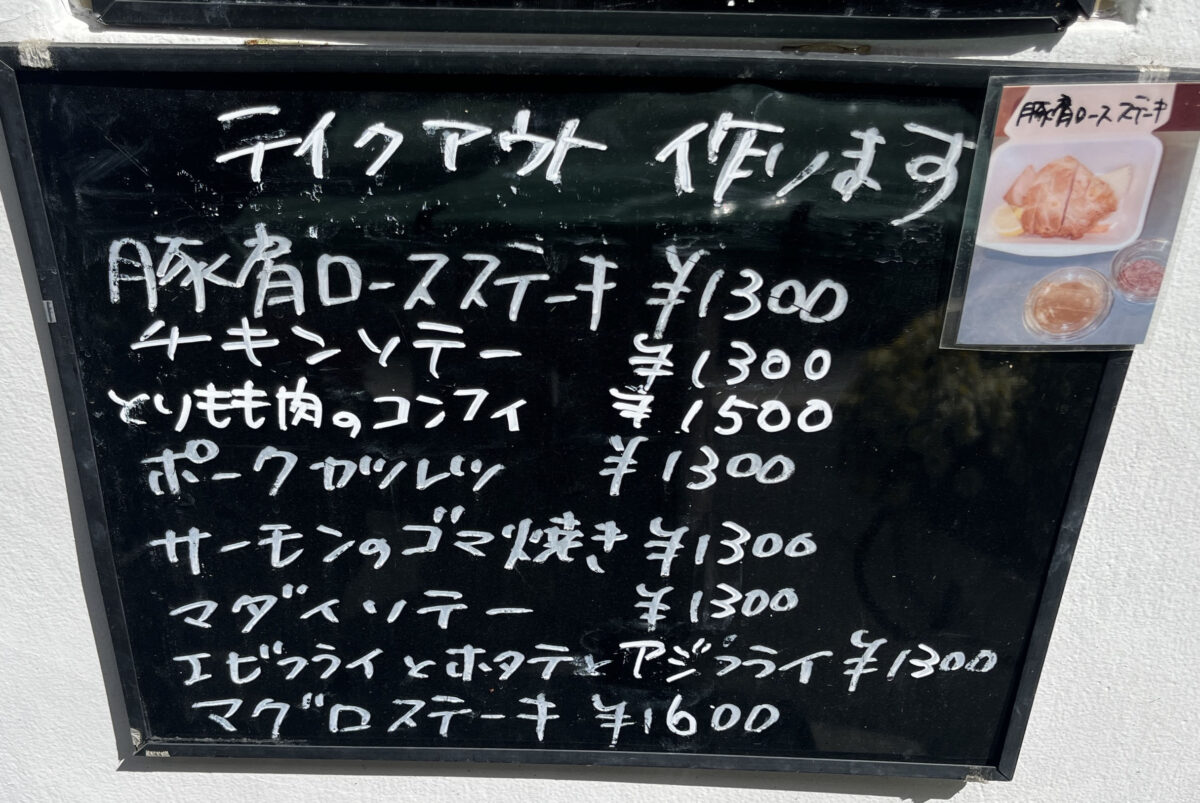 テイクアウト 作ります
豚肩ロースステーキ ¥1300
チキンソテー ¥1300
とりもも肉のコンフィ ¥1500
ポークカツレツ ¥1300
サーモンのゴマ焼き ¥1300
マダイソテー ¥1300
エビフライとホタテとアジフライ ¥1300
マグロステーキ ¥1600
豚肩ロースステーキ